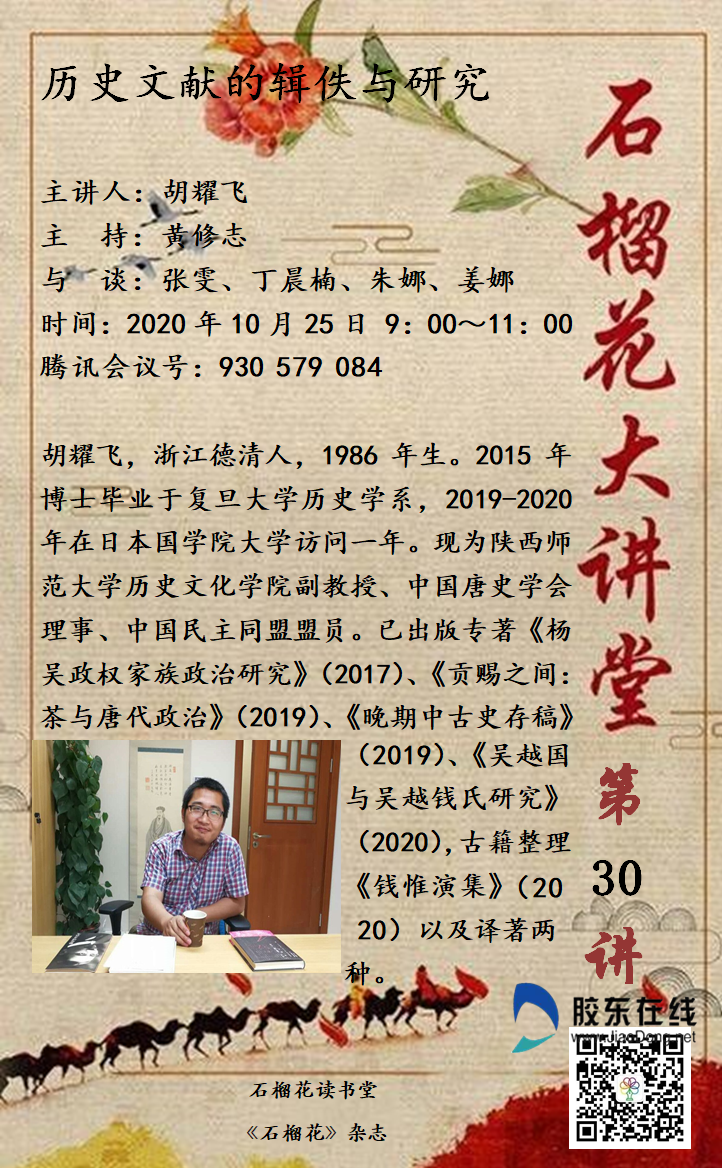 历史文献的辑佚与研究
主讲人：胡耀飞
主　持：黄修志
与　谈：张雯、丁晨楠、朱娜、姜娜
时间：2020 年 10 月 25 日 9：00～11：00
腾讯会议号：930 579 084
胡耀飞，浙江德清人，1986 年生。2015 年
博士毕业于复旦大学历史学系，2019-2020
年在日本国学院大学访问一年。现为陕西师
范大学历史文化学院副教授、中国唐史学会
理事、中国民主同盟盟员。已出版专著《杨
吴政权家族政治研究》（2017）、《贡赐之间：
茶与唐代政治》（2019）、《晚期中古史存稿》
（2019）、《吴越国
与吴越钱氏研究》
（2020），古籍整理
《钱惟演集》（20
20）以及译著两
种。
石榴花大讲堂
第
30
讲
胶东在线
www.JiaoDong.net
石榴花读书堂
《石榴花》杂志